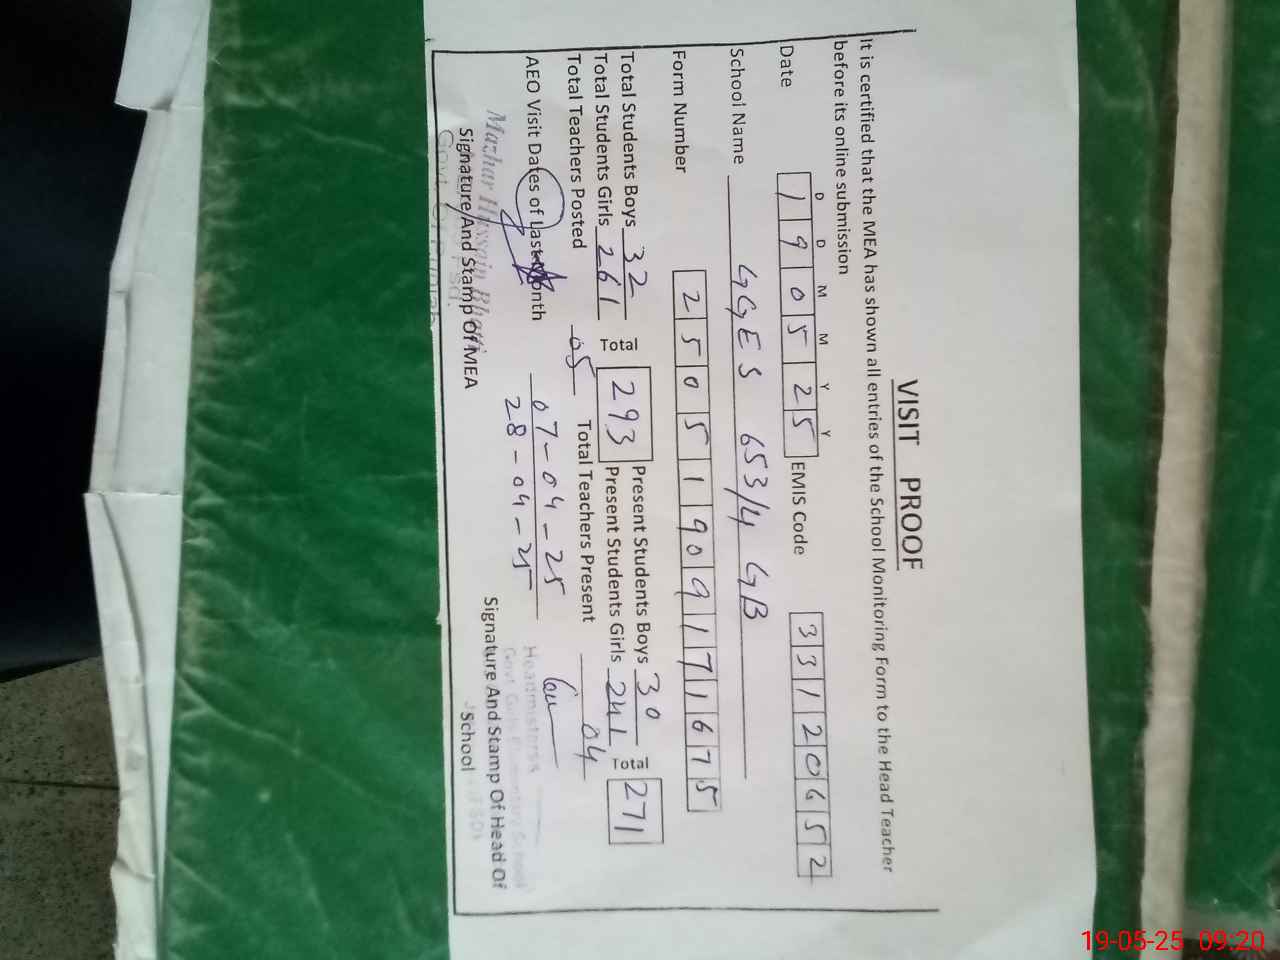 VISIT PROOF
It is certified that the MEA has shown all entries of the School Monitoring Form to the Head Teacher
before its online submission
D D M M Y Y
Date 190525 EMIS Code 33120652
School Name GGES 653/4 GB
Form Number 25051909171675
Total Students Boys 32 Total 293 Present Students Boys 30 Total 271
Total Students Girls 261 Present Students Girls 241
Total Teachers Posted 05 Total Teachers Present 04
AEO Visit Dates of Last Month 07-04-25
28-04-25
Mazhar Hussain Bhatti
Signature And Stamp Of MEA
Headmistress
Govt. Girls Elementary School
Signature And Stamp Of Head Of
School
19-05-25 09:20